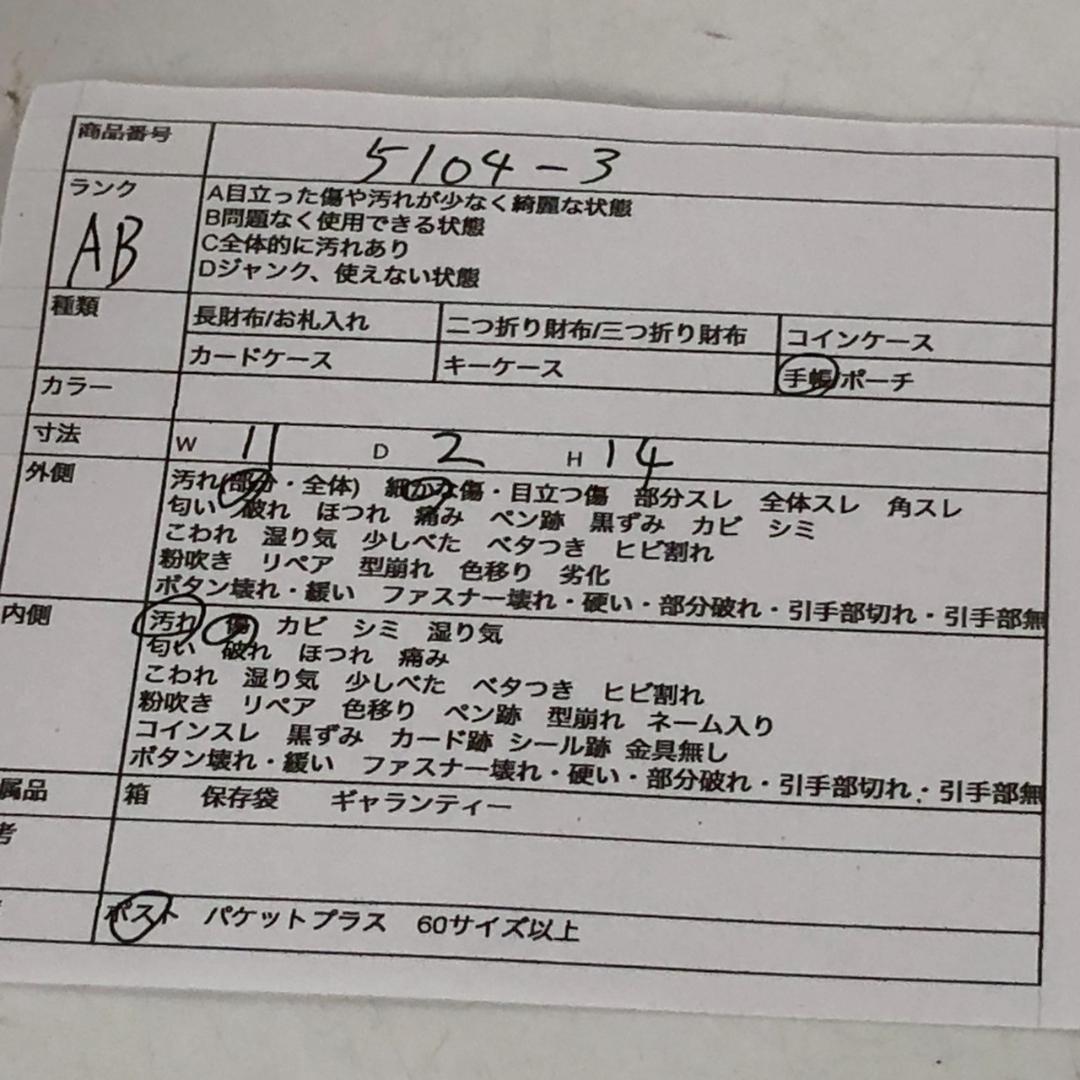 商品番号 5104-3
ランク AB
A目立った傷や汚れが少なく綺麗な状態
B問題なく使用できる状態
C全体的に汚れあり
Dジャンク、使えない状態
種類 長財布/お札入れ 二つ折り財布/三つ折り財布 コインケース
カードケース キーケース 手帳/ポーチ
カラー
寸法 W 11 D 2 H 14
外側 汚れ(部分・全体) 細かな傷・目立つ傷 部分スレ 全体スレ 角スレ
匂い 破れ ほつれ 痛み ペン跡 黒ずみ カビ シミ
こわれ 湿り気 少しべた ベタつき ヒビ割れ
粉吹き リペア 型崩れ 色移り 劣化
ボタン壊れ・緩い ファスナー壊れ・硬い・部分破れ・引手部切れ・引手部無
内側 汚れ 傷 カビ シミ 湿り気
匂い 破れ ほつれ 痛み
こわれ 湿り気 少しべた ベタつき ヒビ割れ
粉吹き リペア 色移り ペン跡 型崩れ ネーム入り
コインスレ 黒ずみ カード跡 シール跡 金具無し
ボタン壊れ・緩い ファスナー壊れ・硬い・部分破れ・引手部切れ・引手部無
属品 箱 保存袋 ギャランティー
考
ポスト パケットプラス 60サイズ以上